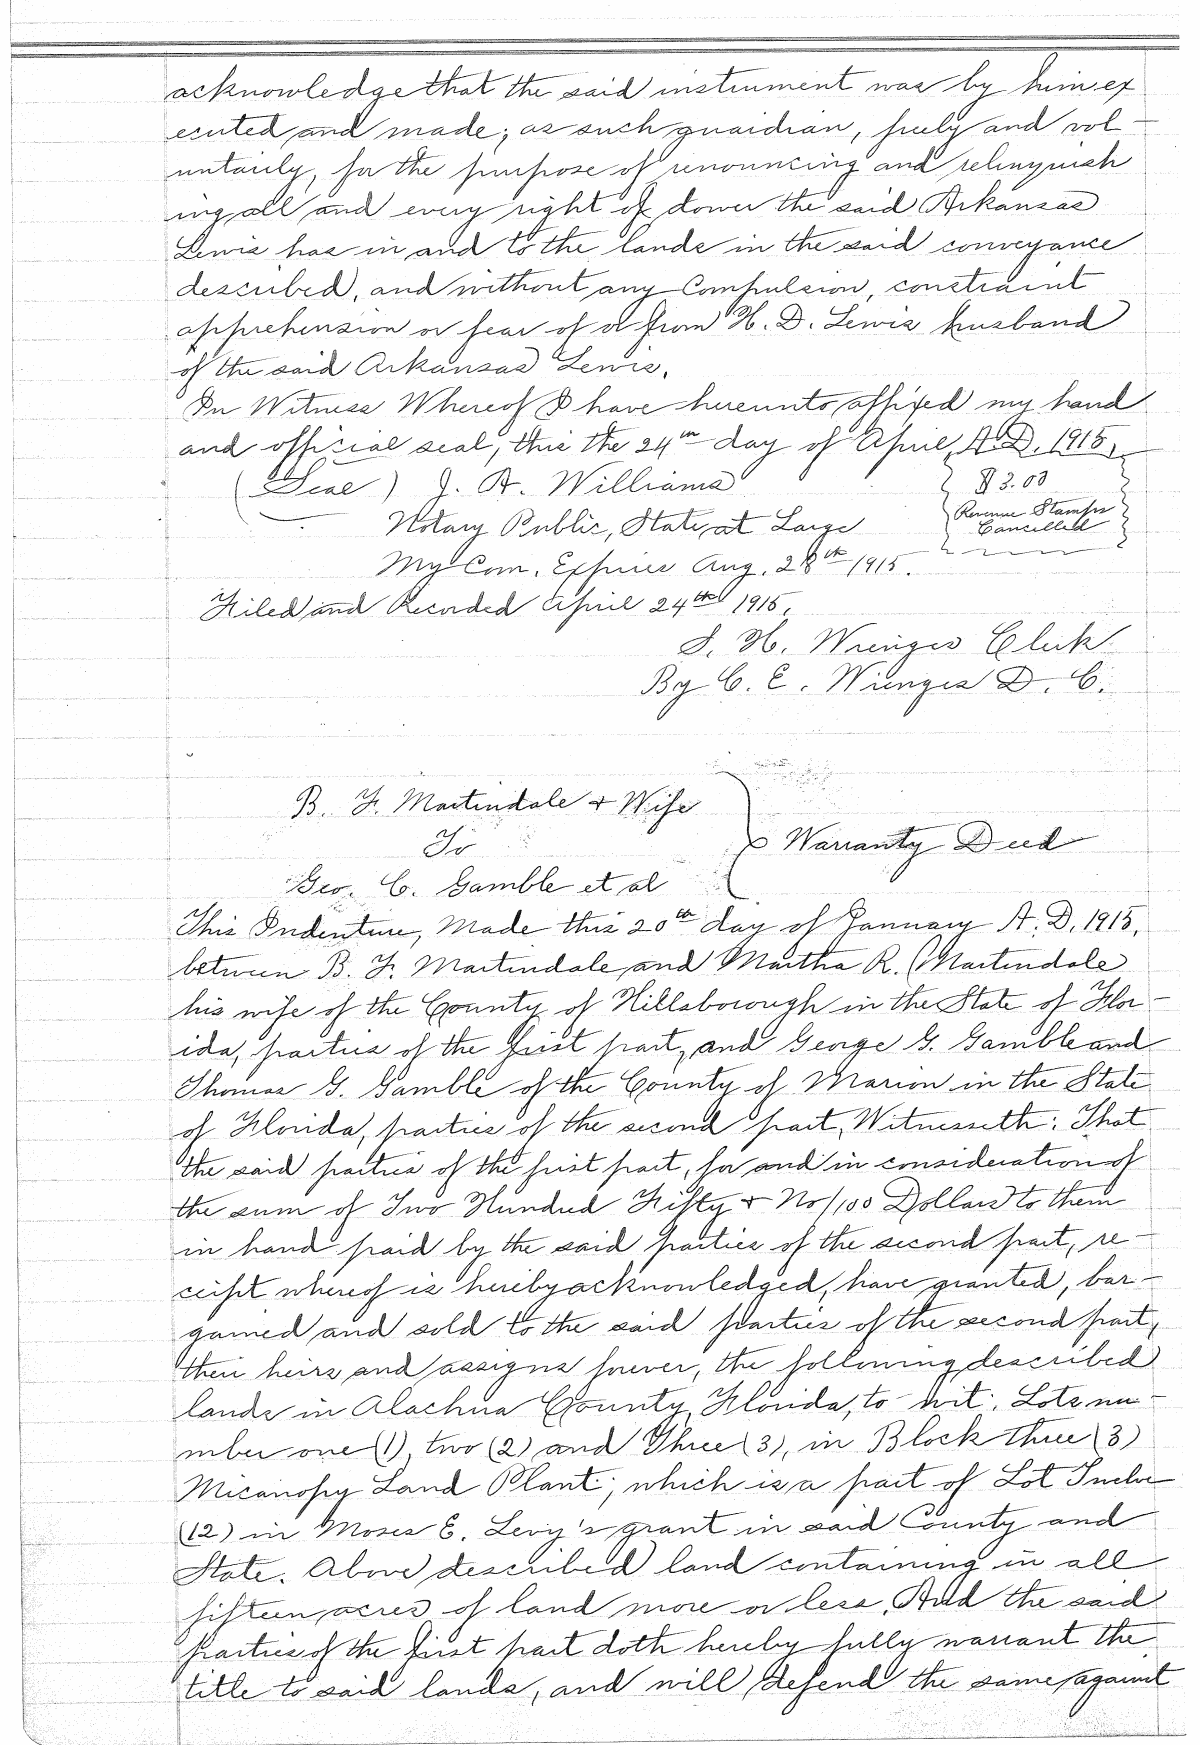 acknowledge that the said instrument was by him ex
ecuted and made; as such guardian, freely and vol-
untarily, for the purpose of renouncing and relinquish
ing all and every right of dower the said Arkansas
Lewis has in and to the lands in the said conveyance
described, and without any Compulsion, constraint
apprehension or fear of or from H. D. Lewis husband
of the said Arkansas Lewis.
In Witness Whereof I have hereunto affixed my hand
and official seal, this the 24th day of April, A.D. 1915,
(Seal) J. A. Williams
$3.00
Revenue Stamps
Cancelled
Notary Public, State at Large
My Com. Expires Aug. 28th 1915.
Filed and Recorded April 24th 1915,
S. H. Wienges Clerk
By C. E. Wienges D. C.
B. F. Martindale + Wife
To
Warranty Deed
Geo. C. Gamble et al
This Indenture, Made this 20th day of January A. D. 1915,
between B. F. Martindale and Martha R. Martindale
his wife of the County of Hillsborough in the State of Flor-
ida, parties of the first part, and George G. Gamble and
Thomas G. Gamble of the County of Marion in the State
of Florida, parties of the second part, Witnesseth: That
the said parties of the first part, for and in consideration of
the sum of Two Hundred Fifty + No/100 Dollars to them
in hand paid by the said parties of the second part, re-
ceipt whereof is hereby acknowledged, have granted, bar-
gained and sold to the said parties of the second part,
their heirs and assigns forever, the following described
lands in Alachua County, Florida, to wit: Lots nu-
mber one (1), two (2) and Three (3), in Block three (3)
Micanopy Land Plant; which is a part of Lot Twelve
(12) in Moses E. Levy's grant in said County and
State. Above described land containing in all
fifteen acres of land more or less. And the said
parties of the first part doth hereby fully warrant the
title to said lands, and will defend the same against